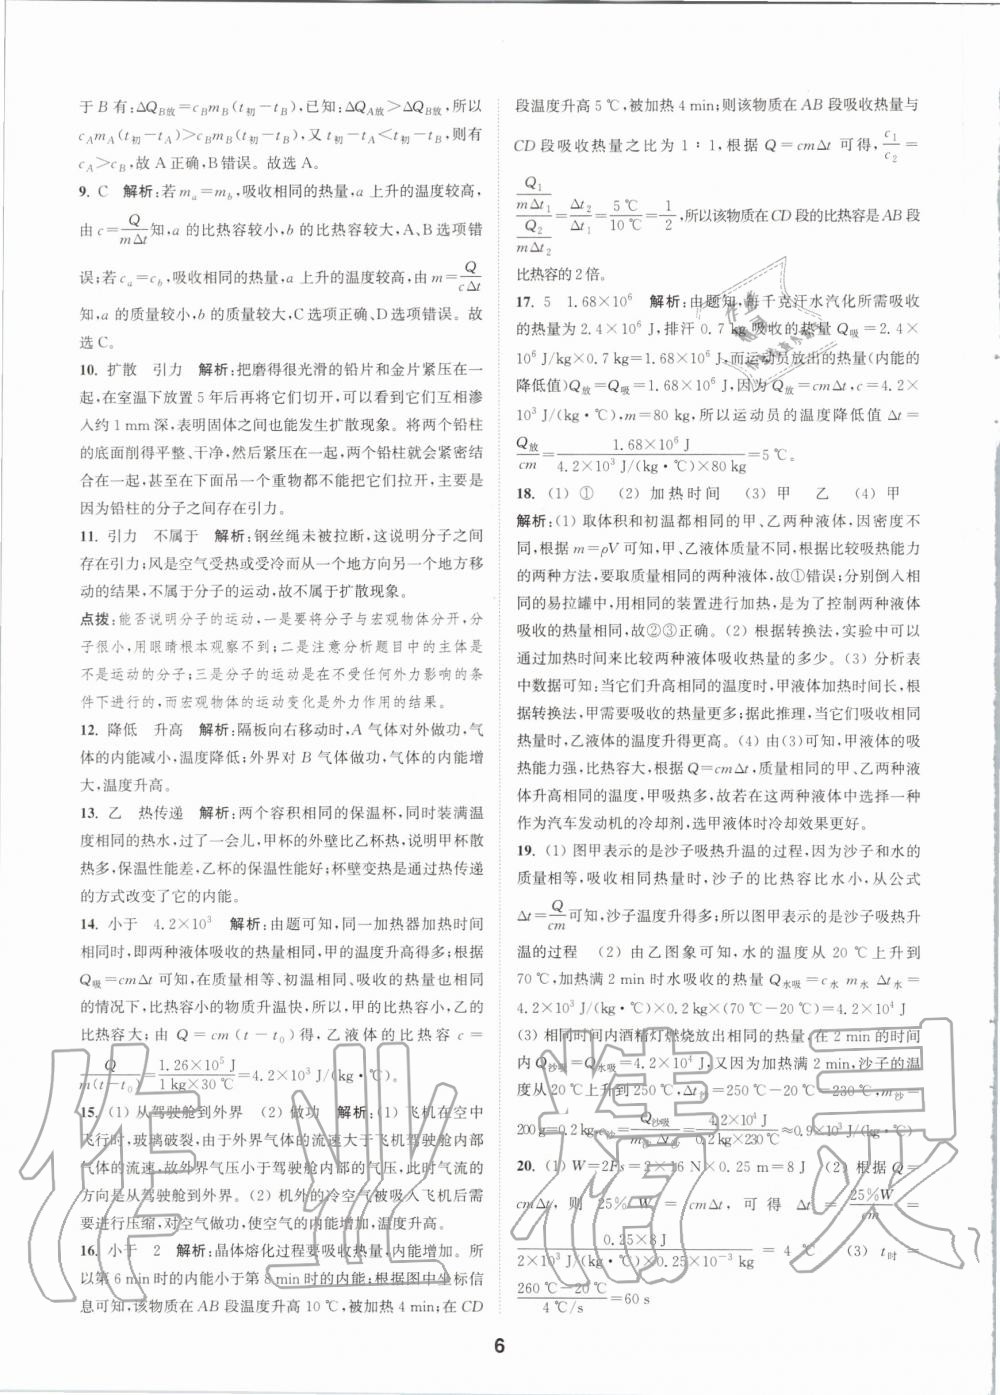 于 B 有:ΔQ_B放=c_B m_B(t_初-t_B),已知:ΔQ_A放>ΔQ_B放,所以
c_A m_A(t_初-t_A)>c_B m_B(t_初-t_B),又 t_初-t_A<t_初-t_B,则有
c_A>c_B,故 A 正确,B 错误。故选 A。
9. C 解析:若 m_a=m_b,吸收相同的热量,a 上升的温度较高,
由 c=Q/(mΔt)知,a 的比热容较小,b 的比热容较大,A、B 选项错
误;若 c_a=c_b,吸收相同的热量,a 上升的温度较高,由 m=Q/(cΔt)
知,a 的质量较小,b 的质量较大,C选项正确,D选项错误。故
选 C。
10. 扩散 引力 解析:把磨得很光滑的铅片和金片紧压在一
起,在室温下放置 5 年后再将它们切开,可以看到它们互相渗
入约 1 mm 深,表明固体之间也能发生扩散现象。将两个铅柱
的底面削得平整、干净,然后紧压在一起,两个铅柱就会紧密结
合在一起,甚至在下面吊一个重物都不能把它们拉开,主要是
因为铅柱的分子之间存在引力。
11. 引力 不属于 解析:钢丝绳未被拉断,这说明分子之间
存在引力;风是空气受热或受冷而从一个地方向另一个地方移
动的结果,不属于分子的运动,故不属于扩散现象。
点拨:能否说明分子的运动,一是要将分子与宏观物体分开,分
子很小,用眼睛根本观察不到;二是注意分析题目中的主体是
不是运动的分子;三是分子的运动是在不受任何外力影响的条
件下进行的,而宏观物体的运动变化是外力作用的结果。
12. 降低 升高 解析:隔板向右移动时,A 气体对外做功,气
体的内能减小,温度降低;外界对 B 气体做功,气体的内能增
大,温度升高。
13. 乙 热传递 解析:两个容积相同的保温杯,同时装满温
度相同的热水,过了一会儿,甲杯的外壁比乙杯热,说明甲杯散
热多,保温性能差,乙杯的保温性能好;杯壁变热是通过热传递
的方式改变了它的内能。
14. 小于 4.2×10³ 解析:由题可知,同一加热器加热时间
相同时,即两种液体吸收的热量相同,甲的温度升高得多;根据
Q_吸=cmΔt 可知,在质量相等、初温相同、吸收的热量也相同
的情况下,比热容小的物质升温快,所以,甲的比热容小,乙的
比热容大;由 Q=cm(t-t₀)得,乙液体的比热容 c=
Q/(m(t-t₀))=(1.26×10⁵ J)/(1 kg×30 ℃)=4.2×10³ J/(kg·℃)。
15. (1) 从驾驶舱到外界 (2) 做功 解析:(1) 飞机在空中
飞行时,玻璃破裂,由于外界气体的流速大于飞机驾驶舱内部
气体的流速,故外界气压小于驾驶舱内气压,此时气流的方
向是从驾驶舱到外界。(2) 机外的冷空气被吸入飞机后需
要进行压缩,对空气做功,使空气的内能增加,温度升高。
16. 小于 2 解析:晶体熔化过程要吸收热量,内能增加。所
以第 6 min时的内能小于第8 min时的内能;根据图中坐标信
息可知,该物质在 AB 段温度升高 10 ℃,被加热 4 min;在 CD
段温度升高 5 ℃,被加热 4 min;则该物质在 AB 段吸收热量与
CD 段吸收热量之比为 1∶1,根据 Q=cmΔt 可得,c₁/c₂=
(Q₁/(mΔt₁))/(Q₂/(mΔt₂))=Δt₂/Δt₁=5 ℃/10 ℃=1/2,所以该物质在CD 段的比热容是AB 段
比热容的2倍。
17. 5 1.68×10⁶ 解析:由题知,每千克汗水汽化所需吸收
的热量为 2.4×10⁶ J,排汗 0.7 kg 吸收的热量 Q_吸=2.4×
10⁶ J/kg×0.7 kg=1.68×10⁶ J,而运动员放出的热量(内能的
降低值)Q_放=Q_吸=1.68×10⁶ J,因为 Q_放=cmΔt,c=4.2×
10³ J/(kg·℃),m=80 kg,所以运动员的温度降低值 Δt=
Q_放/(cm)=(1.68×10⁶ J)/(4.2×10³ J/(kg·℃)×80 kg)=5 ℃。
18. (1) ① (2) 加热时间 (3) 甲 乙 (4) 甲
解析:(1) 取体积和初温都相同的甲、乙两种液体,因密度不
同,根据 m=ρV 可知,甲、乙液体质量不同,根据比较吸热能力
的两种方法,要取质量相同的两种液体,故①错误;分别倒入相
同的易拉罐中,用相同的装置进行加热,是为了控制两种液体
吸收的热量相同,故②③正确。(2) 根据转换法,实验中可以
通过加热时间来比较两种液体吸收热量的多少。(3) 分析表
中数据可知:当它们升高相同的温度时,甲液体加热时间长,根
据转换法,甲需要吸收的热量更多;据此推理,当它们吸收相同
热量时,乙液体的温度升得更高。(4) 由(3)可知,甲液体的吸
热能力强,比热容大,根据 Q=cmΔt,质量相同的甲、乙两种液
体升高相同的温度,甲吸热多,故若在这两种液体中选择一种
作为汽车发动机的冷却剂,选甲液体时冷却效果更好。
19. (1) 图甲表示的是沙子吸热升温的过程,因为沙子和水的
质量相等,吸收相同热量时,沙子的比热容比水小,从公式
Δt=Q/(cm)可知,沙子温度升得多;所以图甲表示的是沙子吸热升
温的过程 (2) 由乙图象可知,水的温度从 20 ℃上升到
70 ℃,加热满 2 min时水吸收的热量 Q_水吸=c_水 m_水 Δt_水=
4.2×10³ J/(kg·℃)×0.2 kg×(70 ℃-20 ℃)=4.2×10⁴ J
(3) 相同时间内酒精灯燃烧放出相同的热量,在 2 min 的时间
内 Q_沙吸=Q_水吸=4.2×10⁴ J,又因为加热满 2 min,沙子的温
度从 20 ℃上升到 250 ℃,Δt=250 ℃-20 ℃=230 ℃,m_沙=
200 g=0.2 kg,c_沙=Q_沙吸/(m_沙 Δt_沙)=(4.2×10⁴ J)/(0.2 kg×230 ℃)≈0.9×10³ J/(kg·℃)
20. (1) W=2Fs=2×16 N×0.25 m=8 J (2) 根据 Q=
cmΔt,则 25%W=cmΔt,可得 Δt=25%W/(cm)=
(0.25×8 J)/(2×10³ J/(kg·℃)×0.25×10⁻³ kg)=4 ℃ (3) t_时=
(260 ℃-20 ℃)/(4 ℃/s)=60 s
6
作业精灵